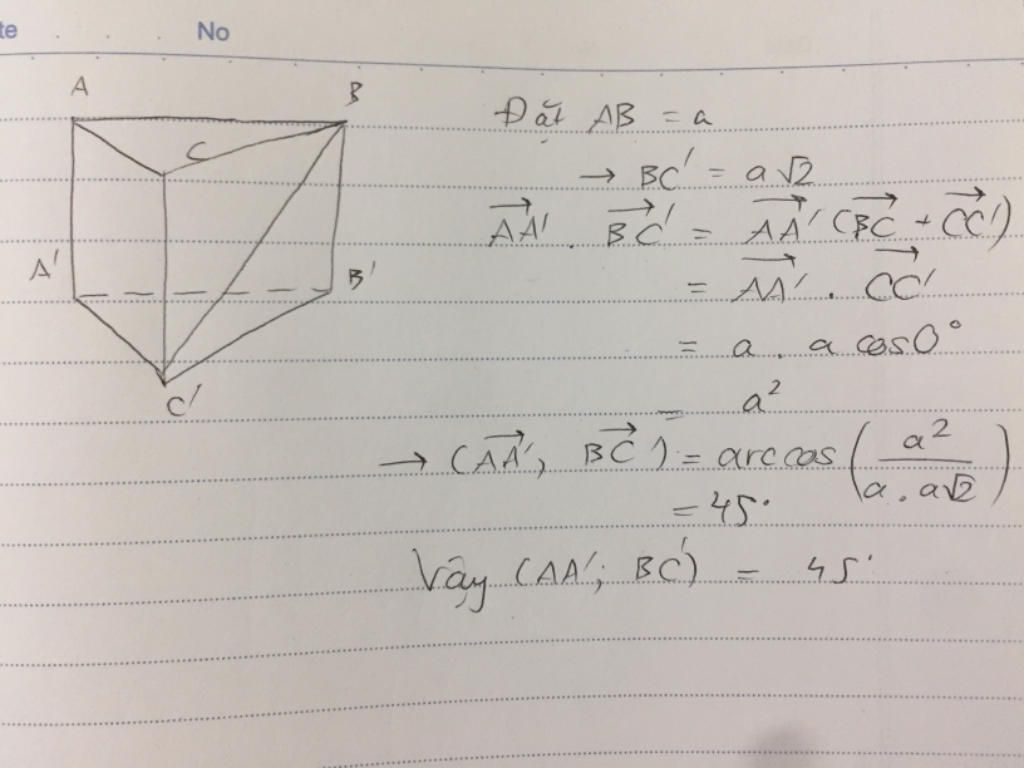 te
No
A
B
C
A'
B'
C'
Đặt AB = a
→ BC' = a√2
AA' . BC' = AA' (BC + CC')
= AA' . CC'
= a . a cos0°
= a²
→ (AA', BC') = arccos (a² / a . a√2)
= 45°
Vậy (AA'; BC') = 45°